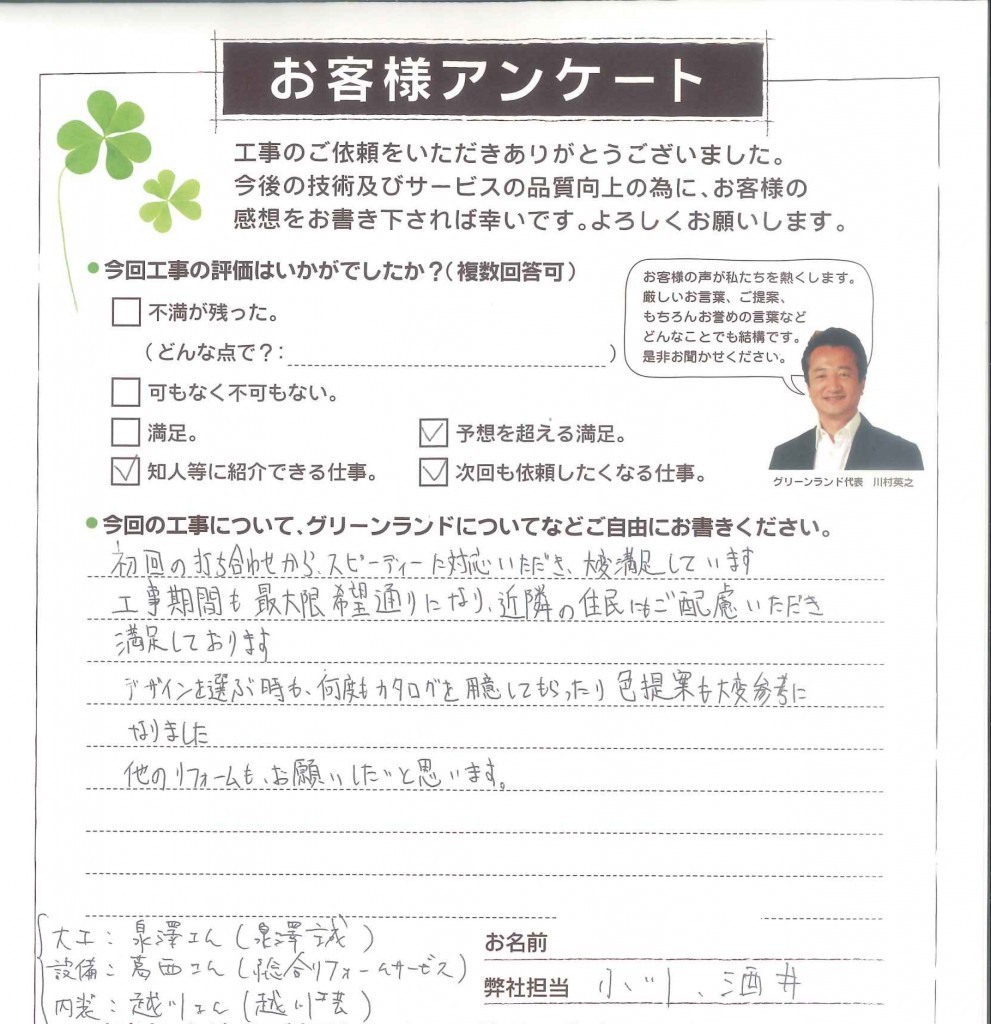 お客様アンケート
工事のご依頼をいただきありがとうございました。
今後の技術及びサービスの品質向上の為に、お客様の
感想をお書き下されば幸いです。よろしくお願いします。
●今回工事の評価はいかがでしたか？（複数回答可）
お客様の声が私たちを熱くします。
厳しいお言葉、ご提案、
もちろんお誉めの言葉など
どんなことでも結構です。
是非お聞かせください。
不満が残った。
（どんな点で？：　）
可もなく不可もない。
満足。
予想を超える満足。
知人等に紹介できる仕事。
次回も依頼したくなる仕事。
グリーンランド代表　川村英之
●今回の工事について、グリーンランドについてなどご自由にお書きください。
初回の打ち合わせから、スピーディーに対応いただき、大変満足しています
工事期間も最大限希望通りになり、近隣の住民にもご配慮いただき
満足しております
デザインを選ぶ時も、何度もカタログを用意してもらったり色提案も大変参考に
なりました
他のリフォームも、お願いしたいと思います。
大工：泉澤さん（泉澤誠）
設備：葛西さん（総合リフォームサービス）
内装：越川さん（越川　）
お名前
弊社担当　小川、酒井